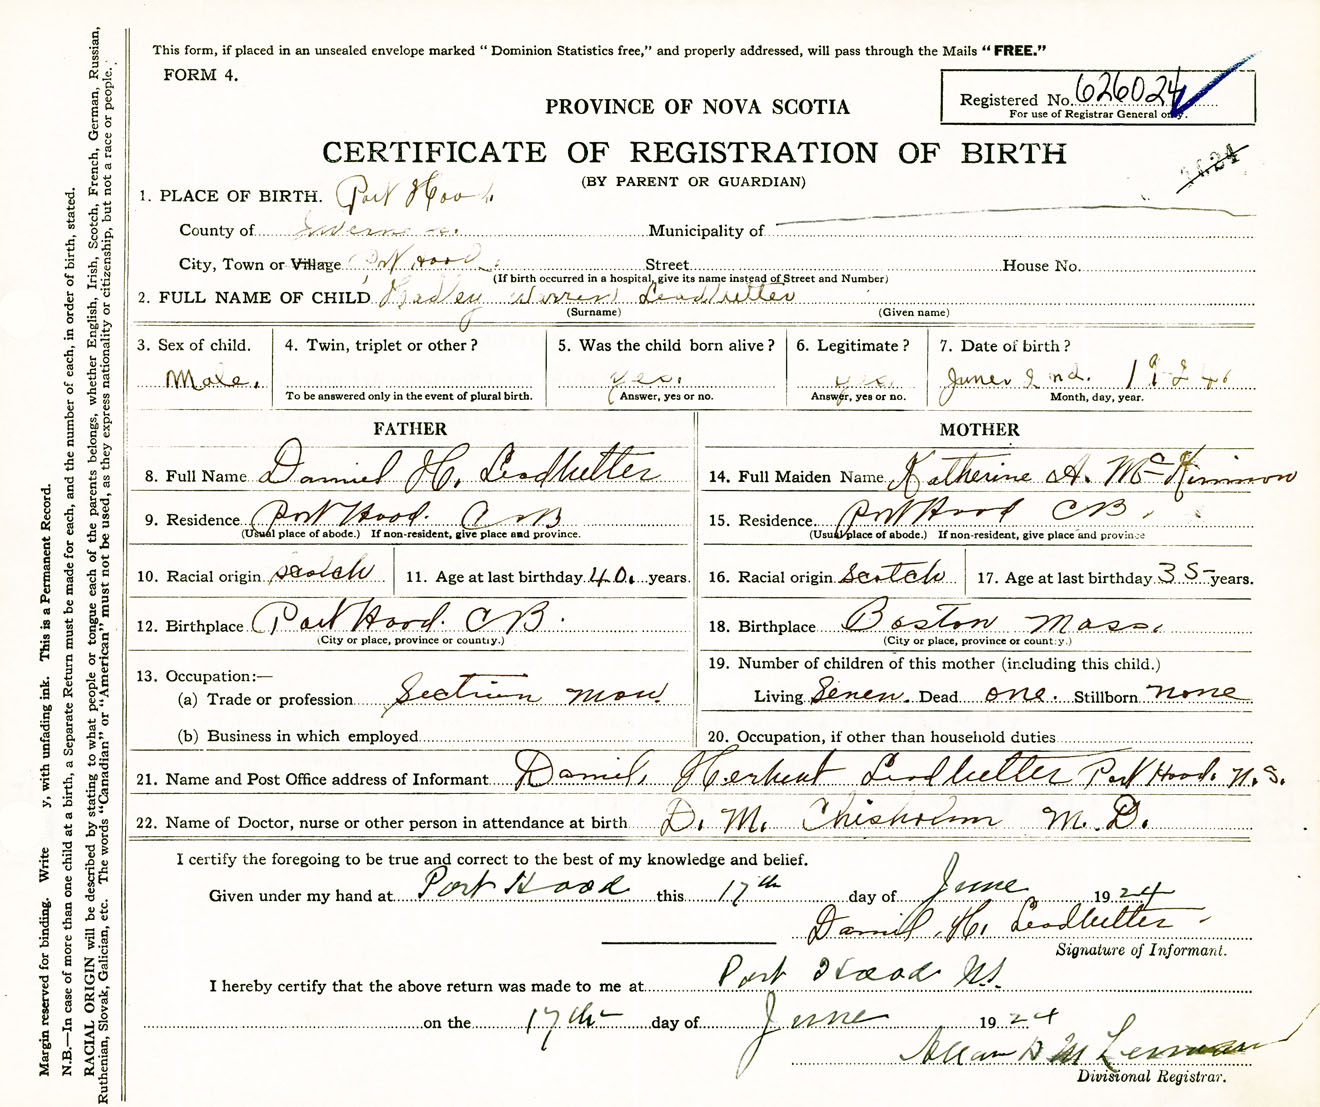 This form, if placed in an unsealed envelope marked " Dominion Statistics free," and properly addressed, will pass through the Mails " FREE."
FORM 4.
Registered No. 626024
For use of Registrar General only.
PROVINCE OF NOVA SCOTIA
CERTIFICATE OF REGISTRATION OF BIRTH
(BY PARENT OR GUARDIAN)
1. PLACE OF BIRTH. Port Hood
County of Inverness Municipality of
City, Town or Village Port Hood Street House No.
(If birth occurred in a hospital, give its name instead of Street and Number)
2. FULL NAME OF CHILD Warren Leadbetter
(Surname) (Given name)
3. Sex of child. 4. Twin, triplet or other ? 5. Was the child born alive ? 6. Legitimate ? 7. Date of birth ?
Male. yes. yes. June 2nd. 1924
To be answered only in the event of plural birth. Answer, yes or no. Answer, yes or no. Month, day, year.
FATHER MOTHER
8. Full Name Daniel H. Leadbetter 14. Full Maiden Name Katherine A. McKinnon
9. Residence Port Hood. C B 15. Residence Port Hood C B.
(Usual place of abode.) If non-resident, give place and province. (Usual place of abode.) If non-resident, give place and province
10. Racial origin scotch 11. Age at last birthday 40. years. 16. Racial origin Scotch 17. Age at last birthday 35 years.
12. Birthplace Port Hood. C B. 18. Birthplace Boston Mass.
(City or place, province or country.) (City or place, province or country.)
13. Occupation:— 19. Number of children of this mother (including this child.)
(a) Trade or profession Section man Living Seven. Dead one. Stillborn none
(b) Business in which employed 20. Occupation, if other than household duties
21. Name and Post Office address of Informant Daniel Herbert Leadbetter Port Hood. N. S.
22. Name of Doctor, nurse or other person in attendance at birth D. M. Chisholm M. D.
I certify the foregoing to be true and correct to the best of my knowledge and belief.
Given under my hand at Port Hood this 17th day of June 1924
Daniel. H. Leadbetter
Signature of Informant.
I hereby certify that the above return was made to me at Port Hood N.S.
on the 17th day of June 1924
Allan
Divisional Registrar.
Margin reserved for binding. Write y, with unfading ink. This is a Permanent Record.
N.B.—In case of more than one child at a birth, a Separate Return must be made for each, and the number of each, in order of birth, stated.
RACIAL ORIGIN will be described by stating to what people or tongue each of the parents belongs, whether English, Irish, Scotch, French, German, Russian,
Ruthenian, Slovak, Galician, etc. The words "Canadian" or "American" must not be used, as they express nationality or citizenship, but not a race or people.